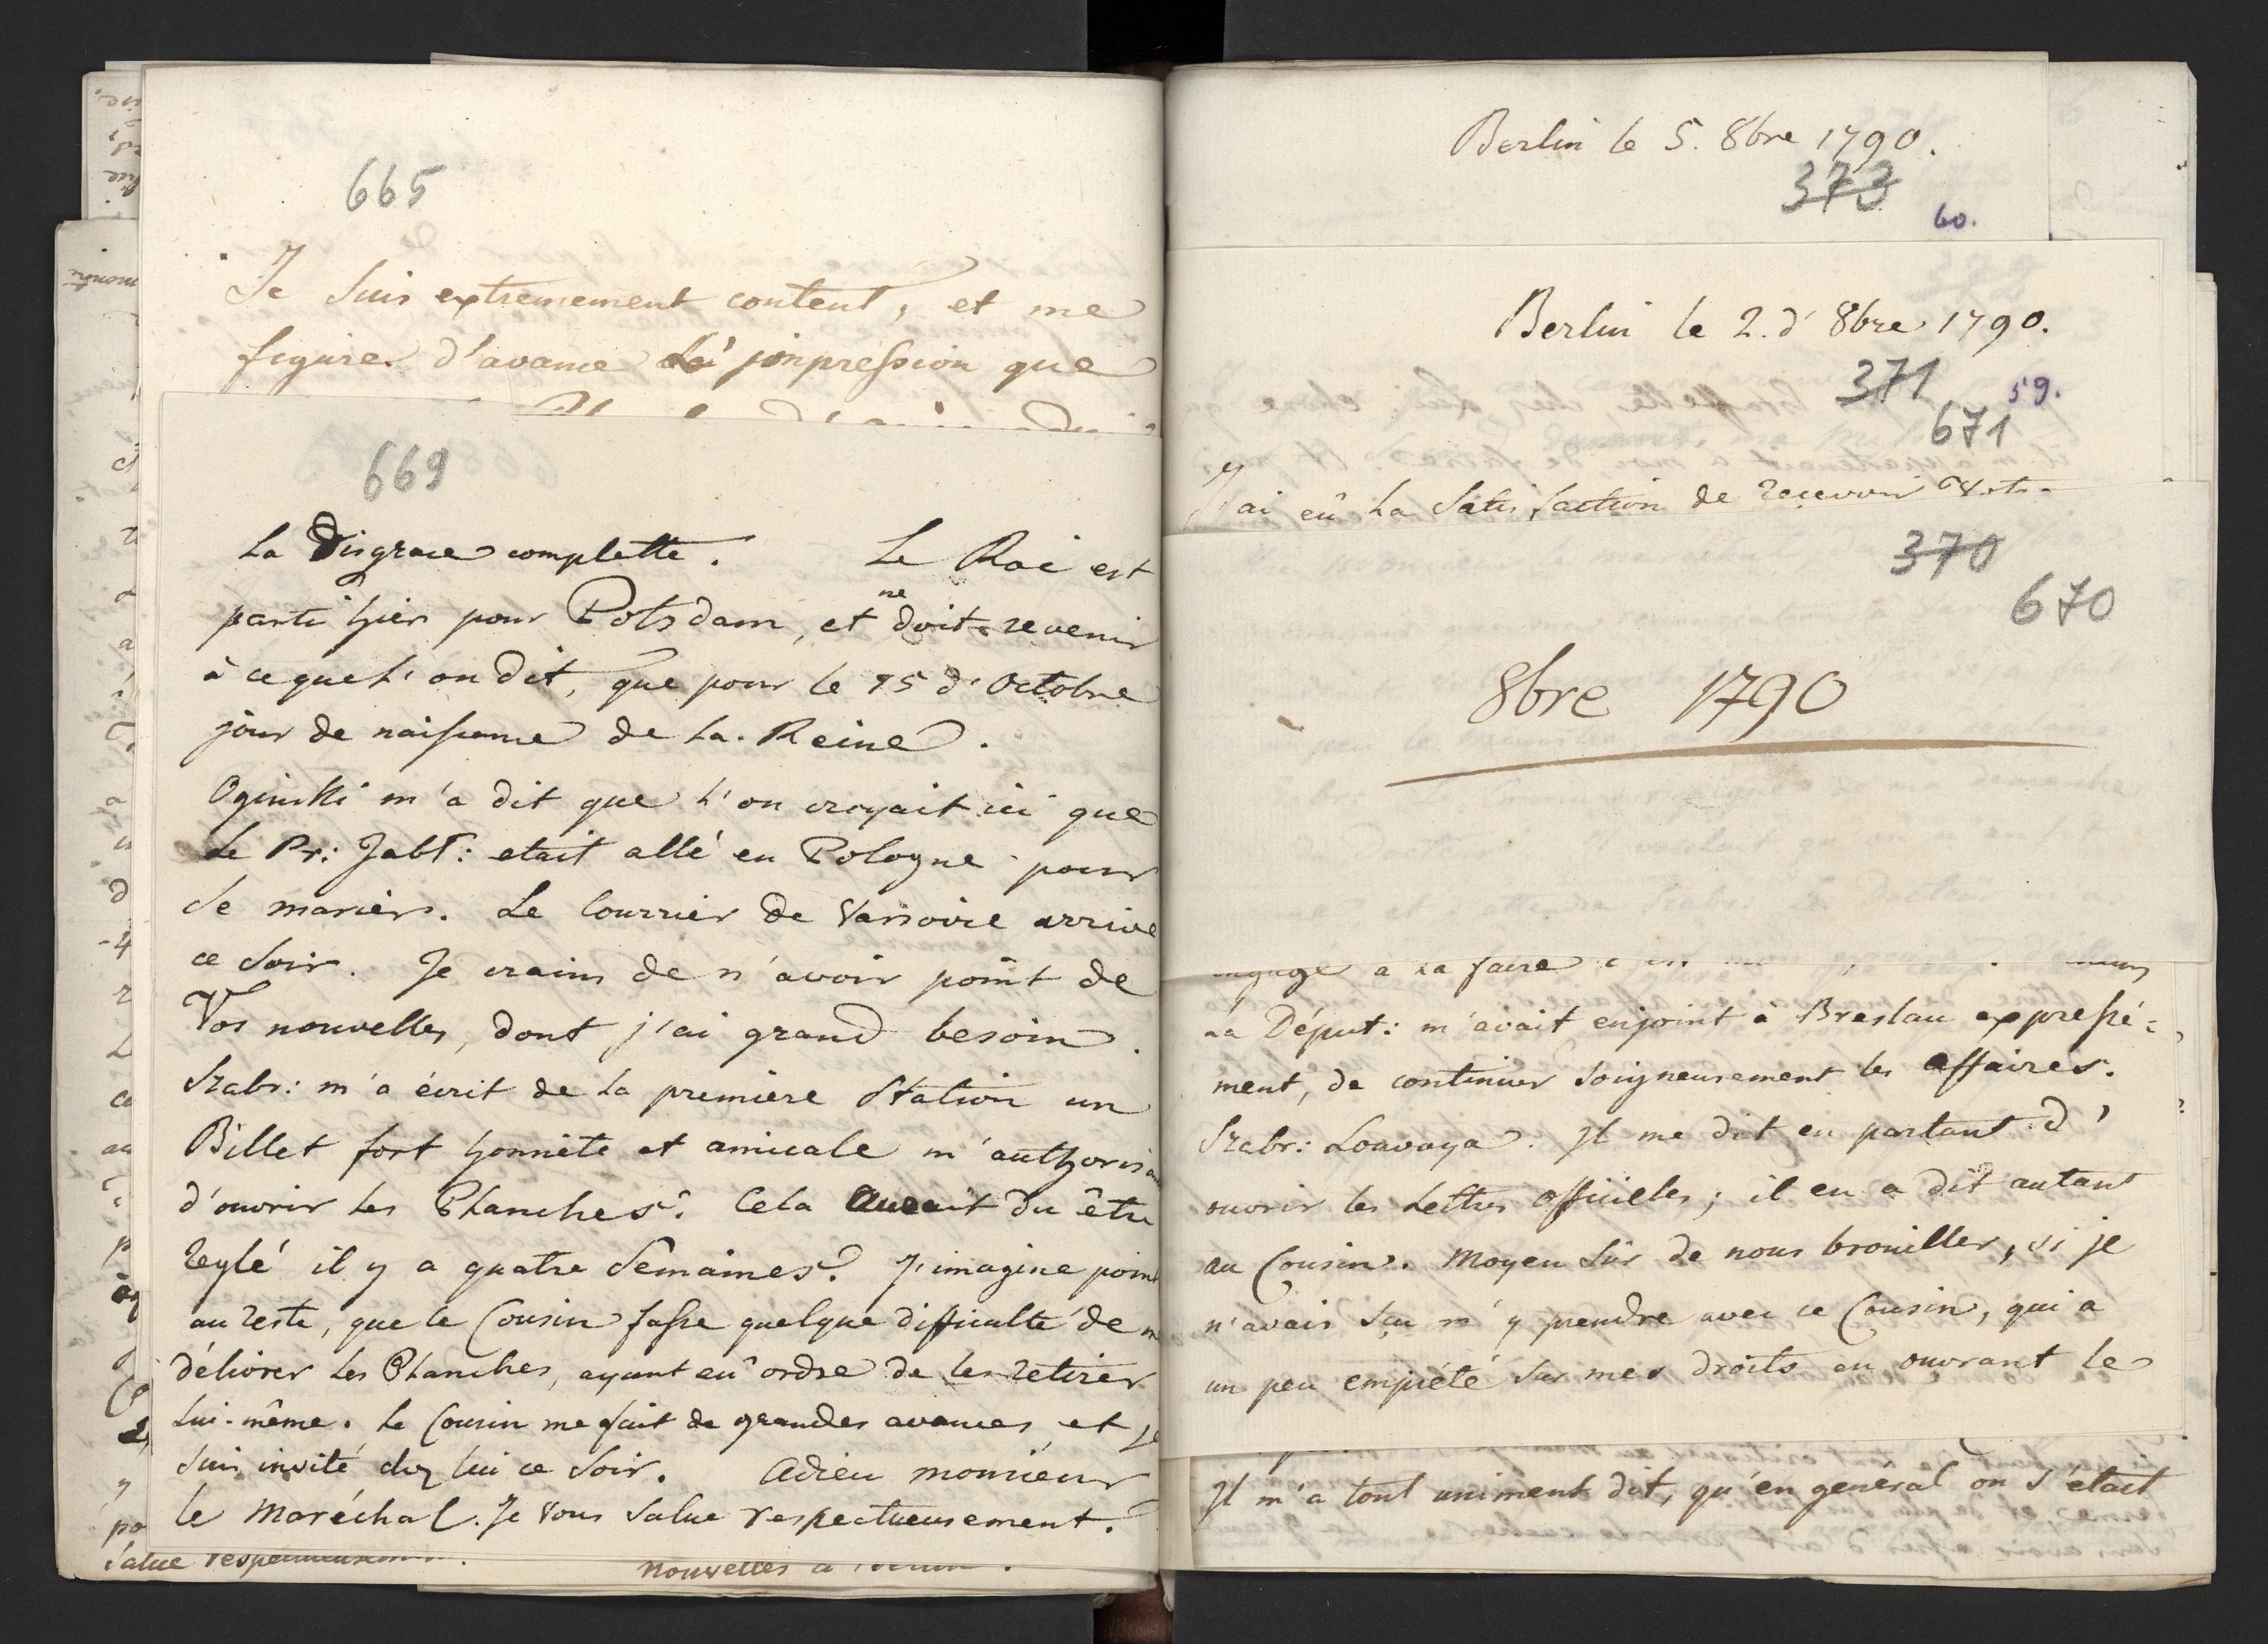 665
Je suis extremement content, et me
figure d'avance impression que
669
La Disgrace complette. Le Roi est
parti hier pour Potsdam, et ne doit revenir
à ce que l'on dit, que pour le 15 d'Octobre
jour de naissance de La Reine.
Oginski m'a dit que l'on croyait ici que
Le Pr: Jabł: etait allé en Pologne pour
se marier. Le Courrier de Varsovie arrive
ce soir. Je crains de n'avoir point de
Vos nouvelles, dont j'ai grand besoin.
Szabr: m'a écrit de la premiere Station un
Billet fort honnête et amicale m'authorisant
d'ouvrir les Planches. Cela aurait du être
reglé il y a quatre semaines. J'imagine point
au reste, que le Cousin fasse quelque difficulté de
délivrer les Planches, ayant eû ordre de les retirer
Lui-même. Le Cousin me fait de grandes avances et je
suis invité chez lui ce soir. Adieu monsieur
le Maréchal. Je Vous salue respectueusement.
salue
nouvelles a
Berlin le 5. 8bre 1790.
373
60.
Berlin le 2. d' 8bre 1790.
371 59.
671
J'ai eû la satisfaction de recevoir
370
670
8bre 1790
a la faire
La Déput: m'avait enjoint à Breslau expressé-
ment, de continuer soigneusement les affaires.
Szabr: Il me dit en partant d'
ouvrir les Lettres officielles; il en a dit autant
au Cousin. Moyen sûr de nous brouiller, si je
n'avais sçu m'y prendre avec ce Cousin, qui a
un peu empiété sur mes droits en ouvrant le
Il m'a tout uniment dit, qu'en general on s'etait